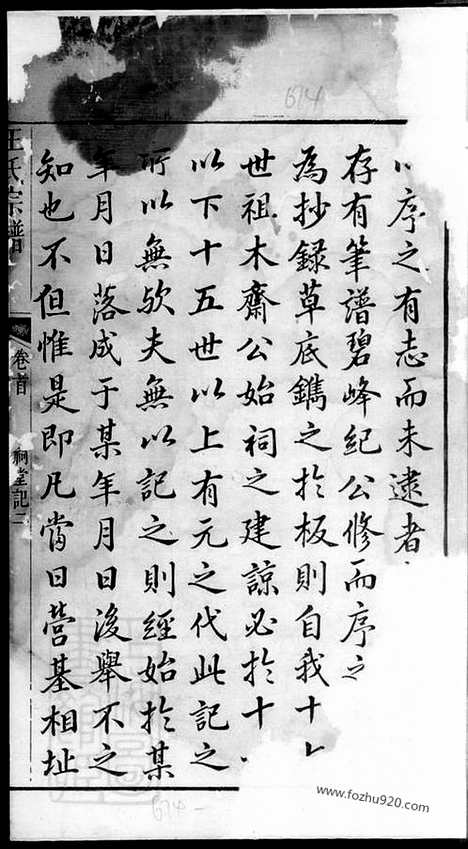 以序之有志而未逮者
存有筆譜碧峰紀公修而序之
為抄録草底鐫之於板則自我十
世祖木齋公始祠之建諒必於十
以下十五世以上有元之代此記之
所以無欤夫無以記之則經始於某
年月日落成于某年月日後舉不之
知也不但惟是即凡當日營基相址
王氏宗譜
卷首
祠堂記二
614
614
www.fozhu920.com